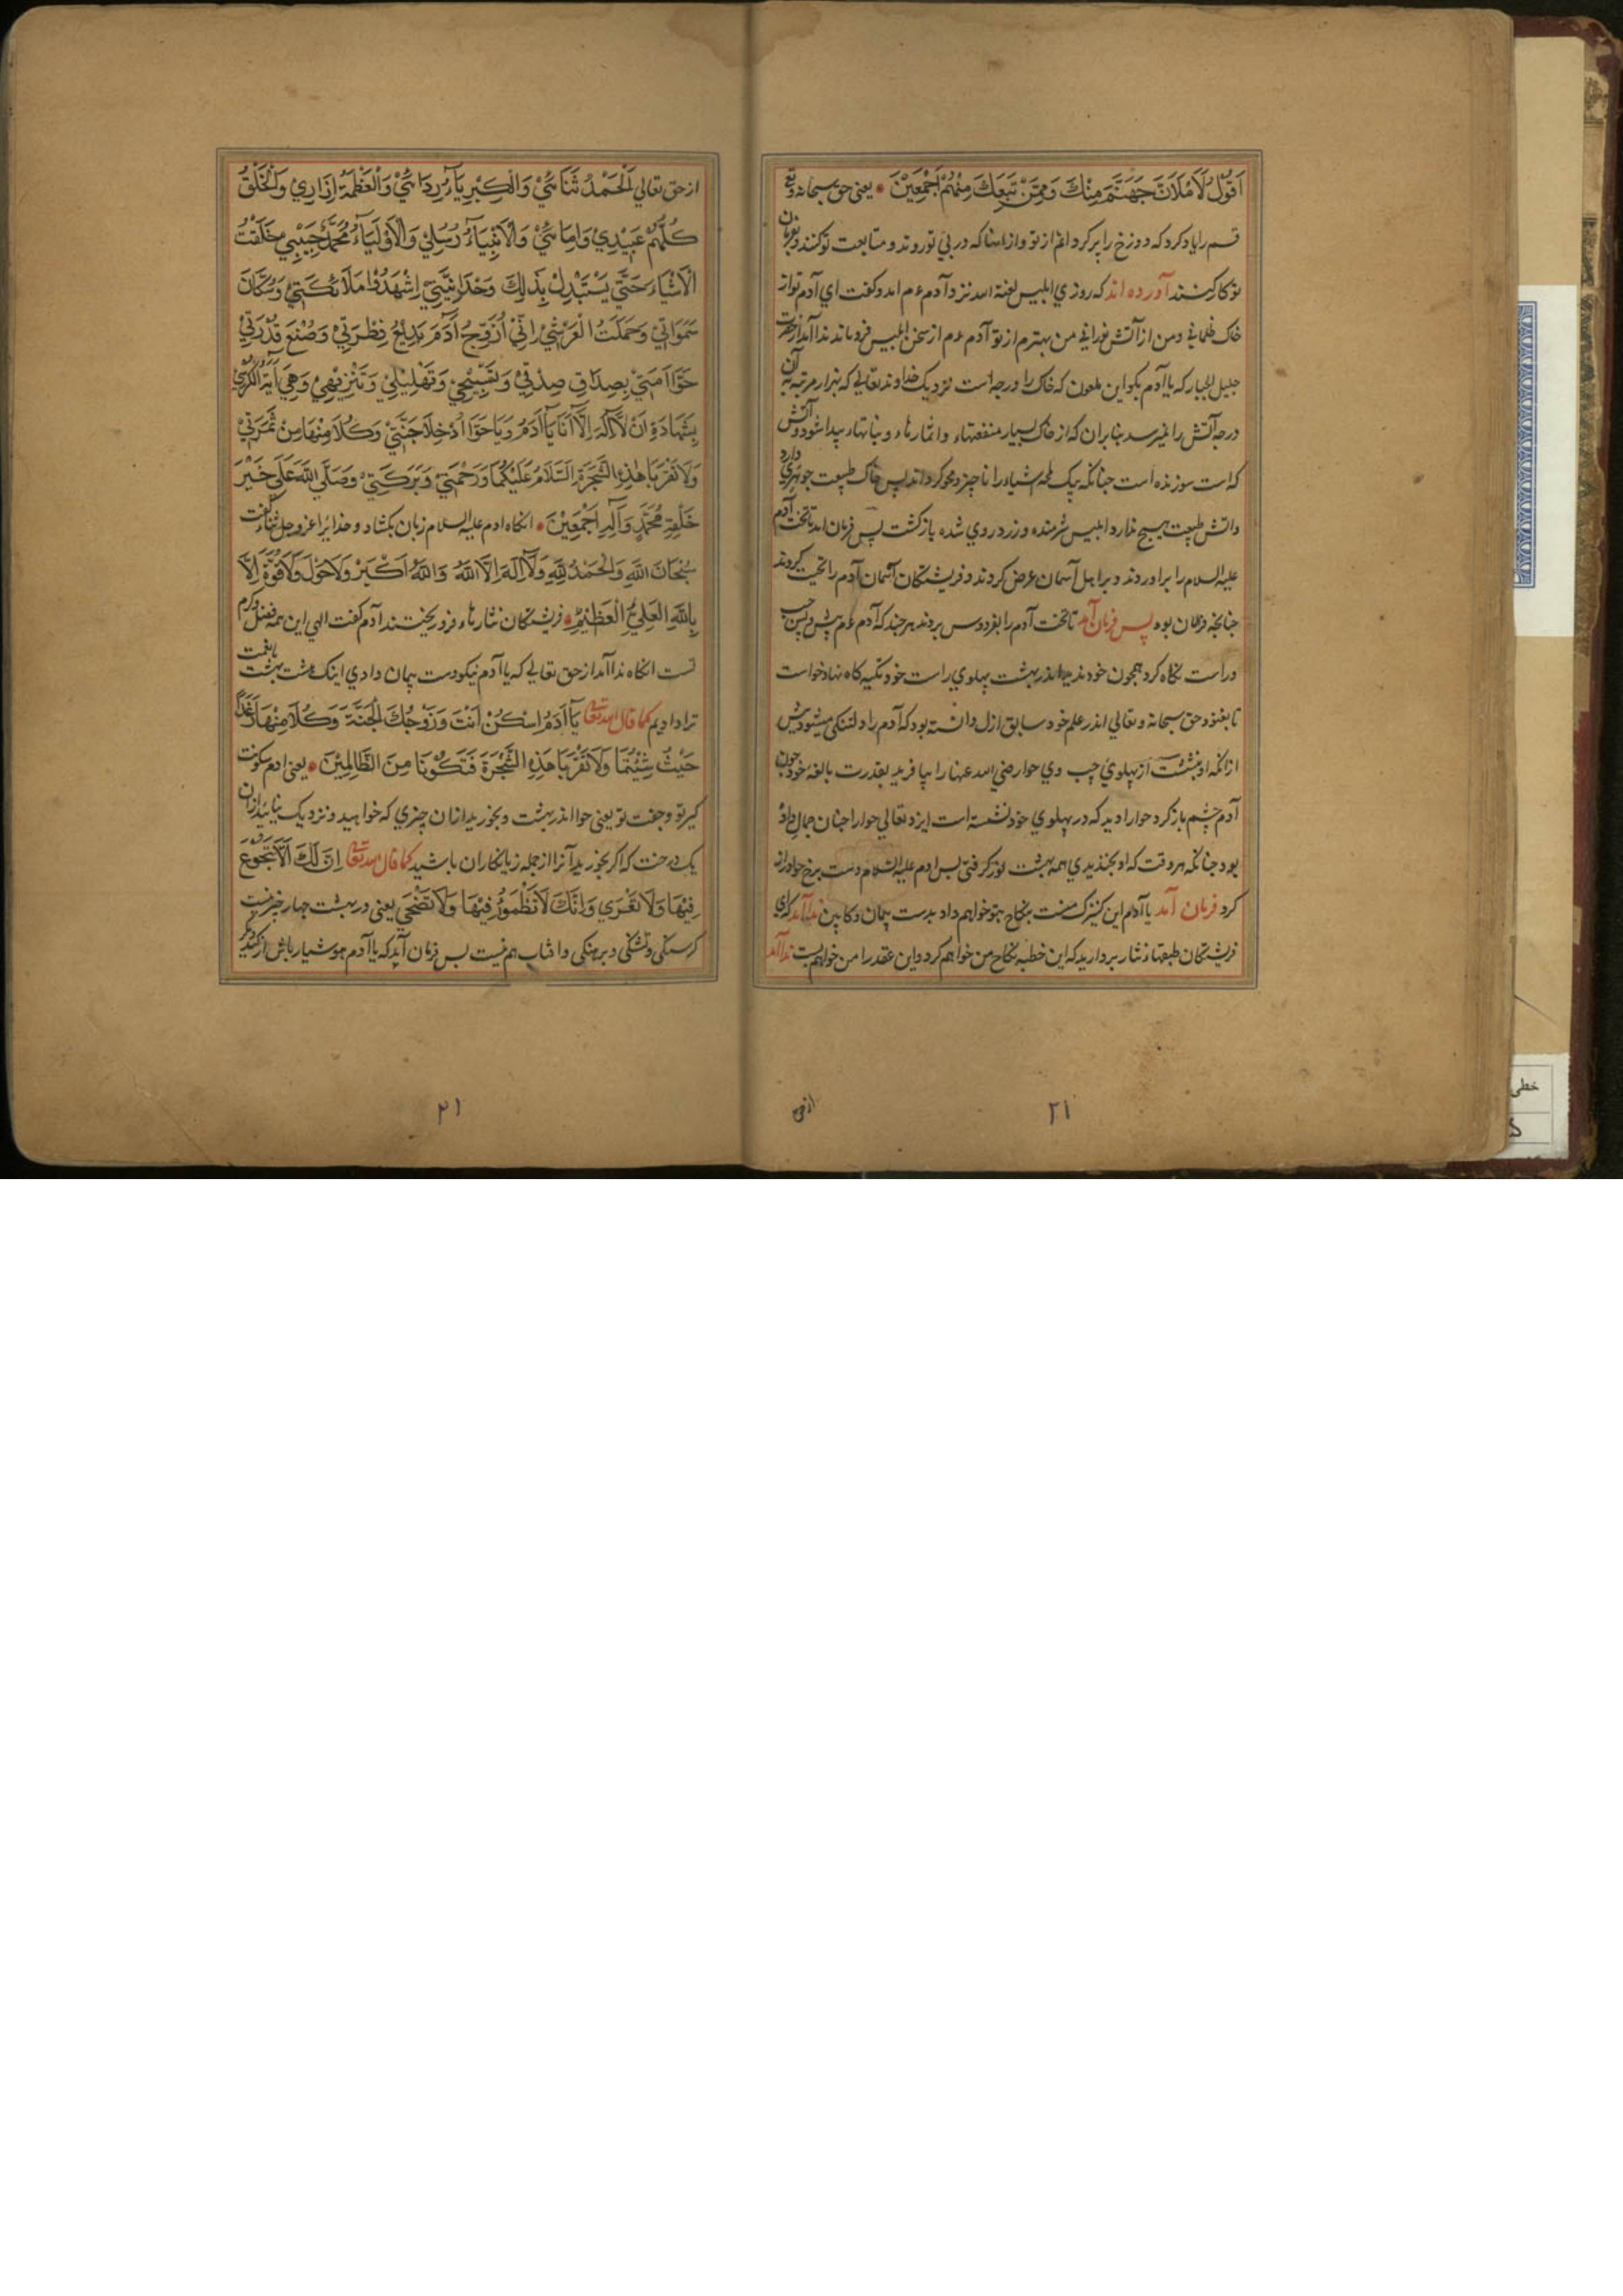 اَقُوْلُ لَاَمْلَاَنَّ جَهَنَّمَ مِنْكَ وَمِمَّنْ تَبِعَكَ مِنْهُمْ اَجْمَعِيْنَ يعني حق سبحانه وتع
قسم را ياد كرد كه دوزخ را پر كردانم از تو و از انها كه در پي تو روند و متابعت تو كنند و بفرمان
تو كار كنند آورده اند كه روزي ابليس لعنة الله نزد آدم ءم امد و كفت اي آدم تو از
خاك ظلماني و من از آتش نوراني من بهترم از تو آدم ءم از سخن ابليس فرو ماند ندا آمد از حضرت
جليل الجبار كه يا آدم بكو اين ملعون كه خاك را درجه است نزديك خداوند تعالي كه بهزار مرتبه به آن
درجه آتش را نميرسد بنابران كه از خاك بسيار منفعتهاء و اثمارهاء و نباتهاء پيدا شود و آتش
كه است سوزنده است چنانكه بيك لمحه اشياء را ناچيز و محو كرداند پس خاك طبيعت جوهري دارد
و آتش طبيعت هيچ ندارد ابليس شرمنده و زرد روي شده بازكشت پس فرمان امد تا تخت آدم
عليه السلام را براوردند و بر اهل آسمان عرض كردند و فريشتكان آسمان آدم را تحيت كردند
چنانچه فرمان بود پس فرمان آمد تا تخت آدم را بفردوس بردند هر چند كه آدم ءم پيش و پس چپ
و راست نكاه كرد همچون خود نديد اندر بهشت پهلوي راست خود تكيه كاه نهاد خواست
تا بغنود حق سبحانه و تعالي اندر علم خود سابق ازل دانسته بود كه آدم را دلتنكي ميشود پيش
ازانكه او بنشست از پهلوي چپ وي حوا رضي الله عنها را بيافريد بقدرت بالغه خود چون
آدم چشم باز كرد حوا را ديد كه در پهلوي خود نشسته است ايزد تعالي حوا را چنان جمال داده
بود چنانكه هر وقت كه او بخنديدي همه بهشت نور كرفتي پس ادم عليه السلام دست برخ حوا دراز
كرد فرمان آمد يا آدم اين كنيزك منست بنكاح بتو خواهم داد بدست پيمان و كابين ندا آمد كه اي
فريشتكان طبقهاء نثار برداريد كه اين خطبه نكاح من خواهم كرد و اين عقد را من خواهم بست ندا آمد
از حق
۲۱
از حق تعالي اَلْحَمْدُ ثَنَائِيْ وَالْكِبْرِيَآءُ رِدَائِيْ وَالْعَظَمَةُ اِزَارِيْ وَالْخَلْقُ
كُلُّهُمْ عَبِيْدِيْ وَاِمَائِيْ وَالْاَنْبِيَآءُ رُسُلِيْ وَالْاَوْلِيَآءُ مُحَمَّدٌ حَبِيْبِيْ خَلَقْتُ
الْاَشْيَاءَ حَتّٰي يَسْتَبْدِلْ بِذٰلِكَ وَحْدَانِيَّتِيْ اِشْهَدُوْا مَلَائِكَتِيْ وَسُكَّانَ
سَمَوَاتِيْ وَحَمَلَتُ الْعَرْشِيْ اِنِّيْ اُزَوِّجُ اٰدَمَ بَدِيْعَ فِطْرَتِيْ وَصُنْعَ قُدْرَتِيْ
حَوَّا اَمَتِيْ بِصِدَاقِ صِدْقِيْ وَتَسْبِيْحِيْ وَتَهْلِيْلِيْ وَتَنْزِيْهِيْ وَهِيَ اٰيَةُ الْكُرْسِيْ
بِشَهَادَةِ اَنْ لَّا اِلٰهَ اِلَّا اَنَا يَا اٰدَمُ وَيَا حَوَّا اُدْخِلَا جَنَّتِيْ وَكُلَا مِنْهَا مِنْ ثَمَرَتِيْ
وَلَا تَقْرَبَا هٰذِهِ الشَّجَرَةَ السَّلَامُ عَلَيْكُمَا وَرَحْمَتِيْ وَبَرَكَتِيْ وَصَلَّي اللّٰهُ عَلَي خَيْرِ
خَلْقِهٖ مُحَمَّدٍ وَاٰلِهٖ اَجْمَعِيْنَ انكاه ادم عليه السلام زبان بكشاد و خدايرا عز و جل ثناء كفت
سُبْحَانَ اللّٰهِ وَالْحَمْدُ لِلّٰهِ وَلَا اِلٰهَ اِلَّا اللّٰهُ وَاللّٰهُ اَكْبَرْ وَلَا حَوْلَ وَلَا قُوَّةَ اِلَّا
بِاللّٰهِ الْعَلِيِّ الْعَظِيْمِ فريشتكان نثارهاء فرو ريختند آدم كفت الهي اين همه فضل و كرم
تست انكاه ندا آمد از حق تعالي كه يا آدم نيكو دست پيمان دادي اينك هشت بهشت با نعمت
ترا داديم كما قال الله تعا يَا اٰدَمُ اسْكُنْ اَنْتَ وَزَوْجُكَ الْجَنَّةَ وَكُلَا مِنْهَا رَغَدًا
حَيْثُ شِئْتُمَا وَلَا تَقْرَبَا هٰذِهِ الشَّجَرَةَ فَتَكُوْنَا مِنَ الظَّالِمِيْنَ يعني ادم سكونت
كير تو و جفت تو يعني حوا اندر بهشت و بخوريد ازان چيزي كه خواهيد و نزديك بيائيد ازان
يك درخت كه اكر بخوريد آنرا از جمله زيانكاران باشيد كما قال الله تعا اِنَّ لَكَ اَلَّا تَجُوْعَ
فِيْهَا وَلَا تَعْرَي وَاِنَّكَ لَا تَظْمَؤُ فِيْهَا وَلَا تَضْحَي يعني در بهشت چهار چيز نيست
كرسنكي و تشنكي و برهنكي و افتاب هم نيست پس فرمان آمد كه يا آدم هوشيار باش از
۲۱
خطی